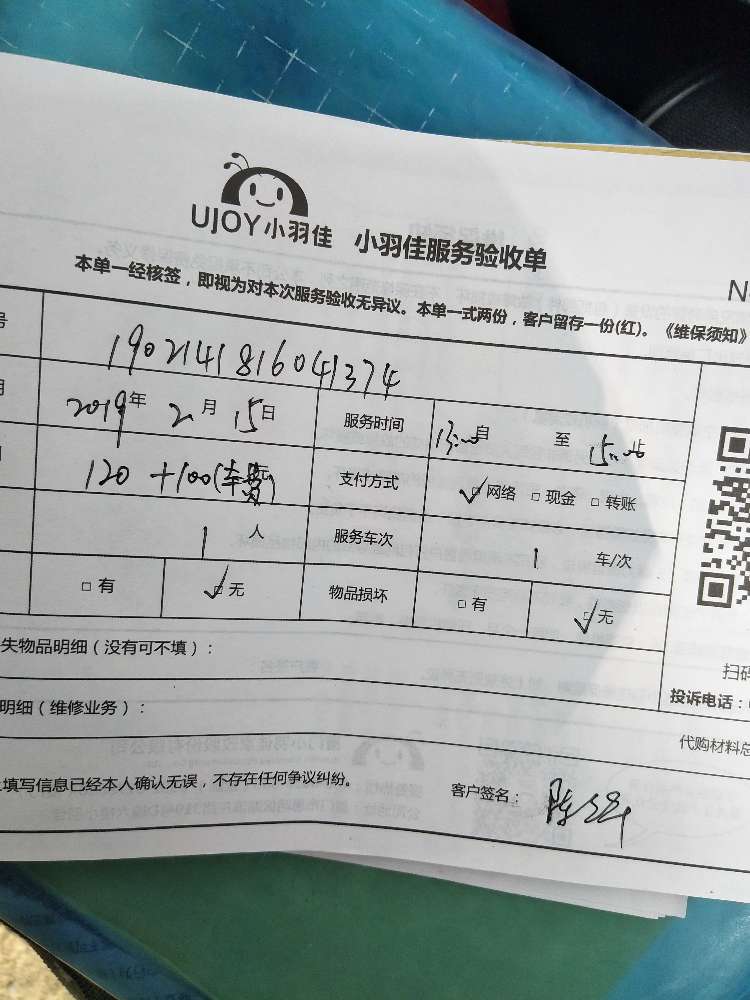 UJOY小羽佳 小羽佳服务验收单
N
本单一经核签，即视为对本次服务验收无异议。本单一式两份，客户留存一份(红)。《维保须知》
号 1902141816041374
期 2019年 2月 15日 服务时间 13:00自 至 15:00
120 +100(车费)元 支付方式 ☑网络 □现金 □转账
1 人 服务车次 1 车/次
□有 ☑无 物品损坏 □有 ☑无
失物品明细（没有可不填）： 扫码
明细（维修业务）： 投诉电话：
代购材料总
上填写信息已经本人确认无误，不存在任何争议纠纷。 客户签名：